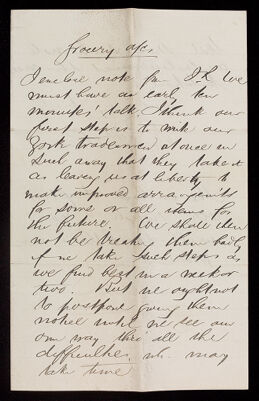 Grocery a/c,
I enclose note from J.R. We
must have an early ten
minutes' talk. I think our
first step is to write our
York tradesmen at once in
such a way that they take it
as leaving us at liberty to
make improved arrangements
for some or all items for
the future. We shall then
not be treating them badly
if we take such steps as
we find best in a week or
two. But we ought not
to postpone giving them
notice until we see our
own way thro' all the
difficulties, wh. may
take time